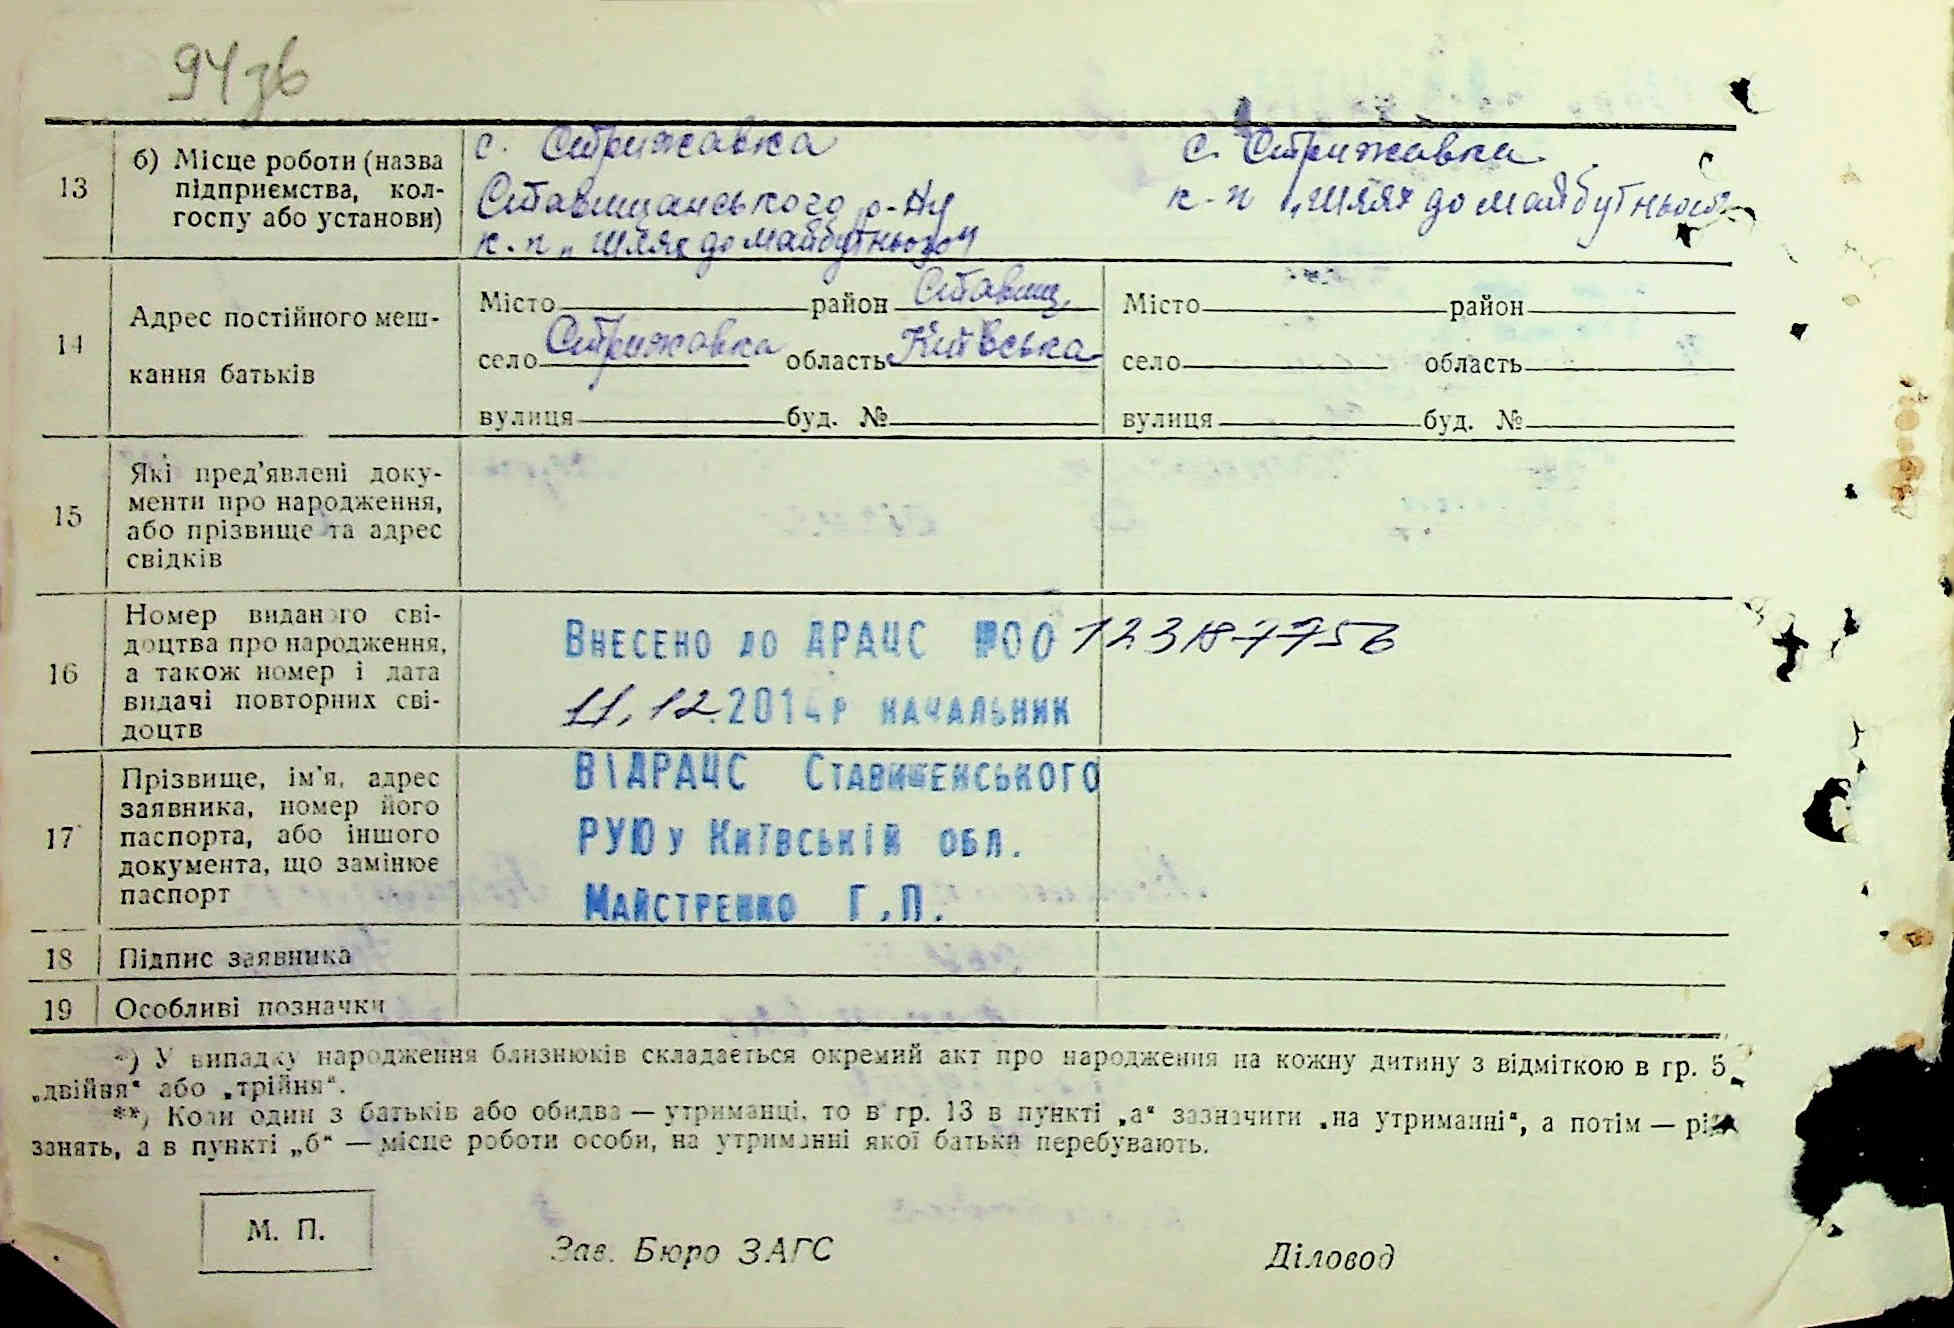 94 зв
13
б) Місце роботи (назва
підприємства, кол-
госпу або установи)
с. Стрижавка
Ставищанського р-ну
к-п „Шлях до майбутнього"
с. Стрижавка
к-п „Шлях до майбутнього"
14
Адрес постійного меш-
кання батьків
Місто район Ставищ.
село Стрижавка область Київська
вулиця буд. №
Місто район
село область
вулиця буд. №
15
Які пред'явлені доку-
менти про народження,
або прізвище та адрес
свідків
16
Номер виданого сві-
доцтва про народження,
а також номер і дата
видачі повторних сві-
доцтв
Внесено до ДРАЦС №00 12318775б
11.12.2014р начальник
17
Прізвище, ім'я, адрес
заявника, номер його
паспорта, або іншого
документа, що замінює
паспорт
ВІДРАЦС Ставищенського
РУЮ у Київській обл.
Майстренко Г.П.
18 Підпис заявника
19 Особливі позначки
*) У випадку народження близнюків складається окремий акт про народження на кожну дитину з відміткою в гр. 5
„двійня" або „трійня".
**) Коли один з батьків або обидва — утриманці, то в гр. 13 в пункті „а" зазначити „на утриманні", а потім — рід
занять, а в пункті „б" — місце роботи особи, на утриманні якої батьки перебувають.
М. П.
Зав. Бюро ЗАГС
Діловод